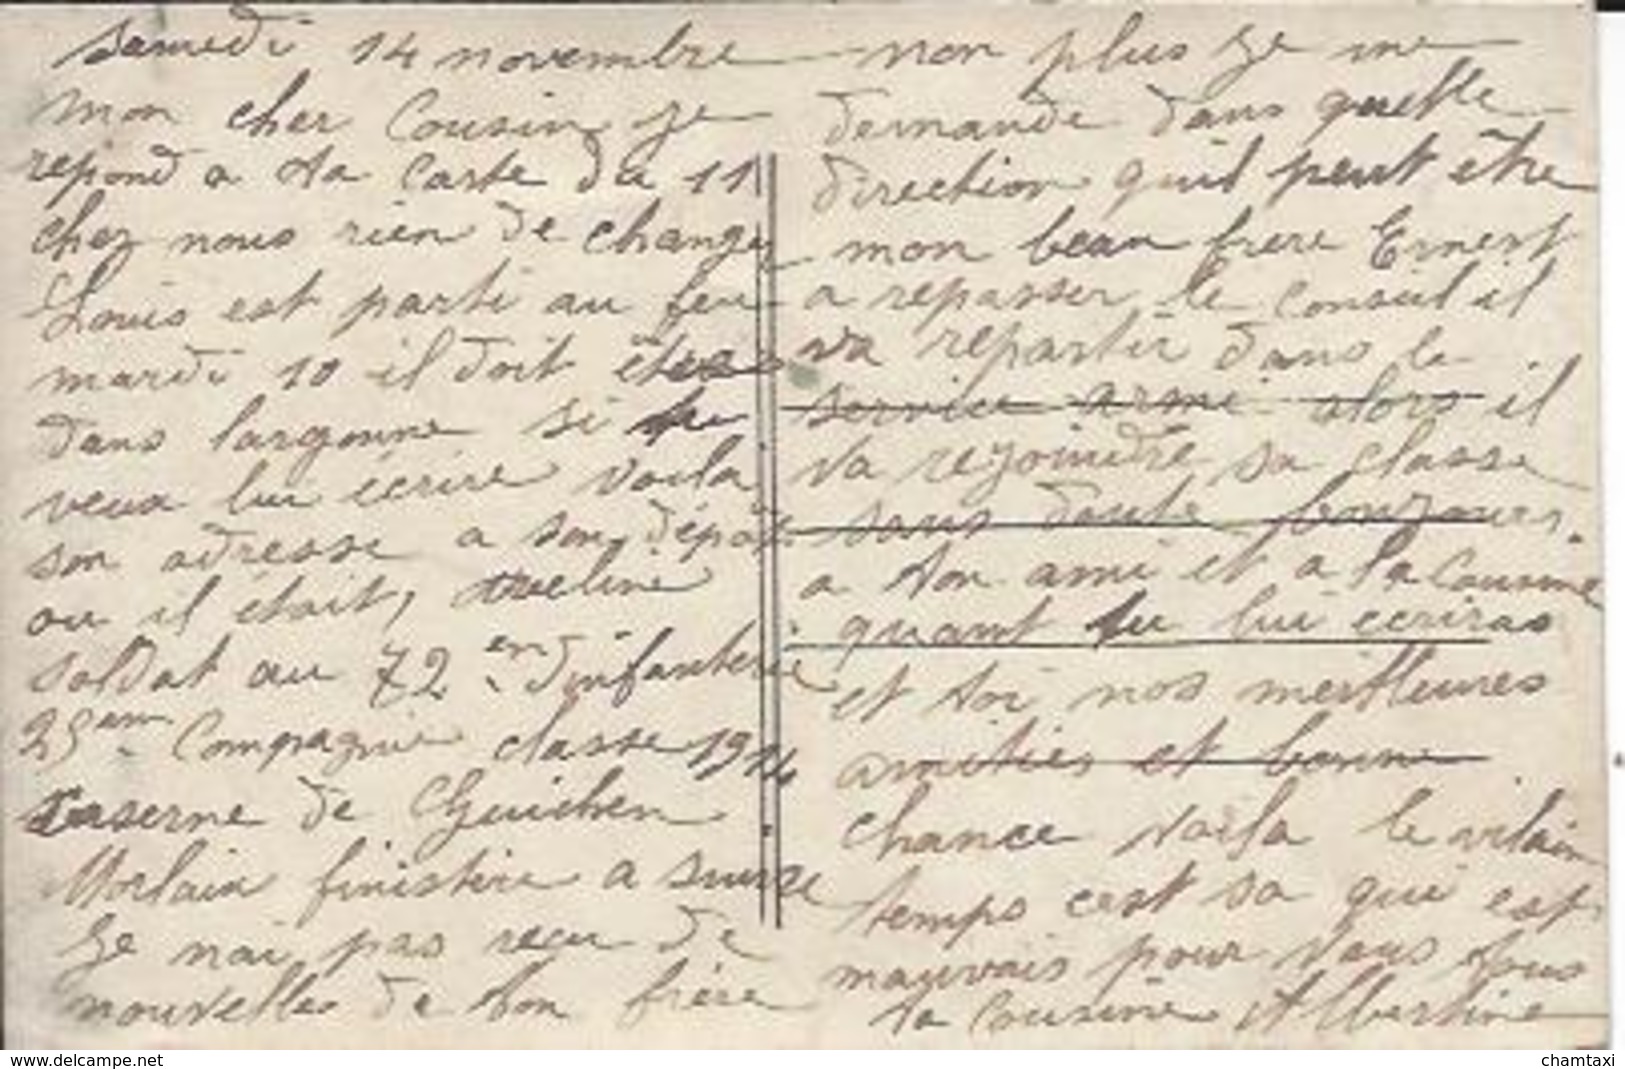 Samedi 14 novembre
mon cher Cousin je
repond a ta Carte du 11
chez nous rien de changer
Louis est parti au feu
mardi 10 il doit être
dans largonne si tu
veux lui écrire voila
son adresse a son dépôt
ou il était,
soldat au 72 em dinfanterie
25 em Compagnie classe 1914
Caserne de Guichen
Morlaix finistère a suivre
Je nai pas recu de
nouvelles de ton frère
non plus je me
demande dans quelle
direction quil peut être
mon beau frere Ernest
a repasser le conseil il
va repartir dans le
service armé alors il
va rejoindre sa classe
sans doute bonjours
a ton ami et a la Cousine
quant tu lui ecriras
et toi nos meilleures
amitiés et bonne
chance voila le vilain
temps cest sa qui est
mauvais pour vous tous
ta Cousine Albertine
www.delcampe.net
chamtaxi